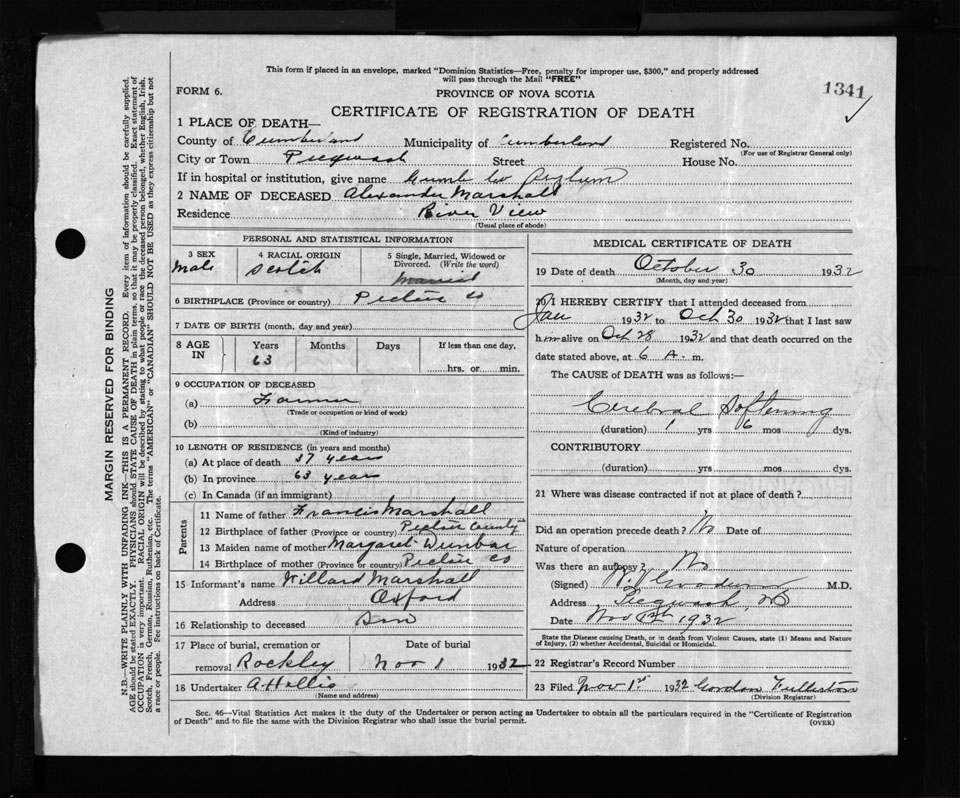 This form if placed in an envelope, marked "Dominion Statistics—Free, penalty for improper use, $300," and properly addressed
will pass through the Mail "FREE"
FORM 6.
PROVINCE OF NOVA SCOTIA
1341
CERTIFICATE OF REGISTRATION OF DEATH
1 PLACE OF DEATH—
County of Cumberland Municipality of Cumberland Registered No.
(For use of Registrar General only)
City or Town Pugwash Street House No.
If in hospital or institution, give name Cumb Co Asylum
2 NAME OF DECEASED Alexander Marshall
Residence River View
(Usual place of abode)
PERSONAL AND STATISTICAL INFORMATION
3 SEX 4 RACIAL ORIGIN 5 Single, Married, Widowed or
Divorced. (Write the word)
Male Scotch Married
6 BIRTHPLACE (Province or country) Pictou Co
7 DATE OF BIRTH (month, day and year)
8 AGE IN Years Months Days If less than one day,
63 hrs. or min.
9 OCCUPATION OF DECEASED
(a) Farmer
(Trade or occupation or kind of work)
(b)
(Kind of industry)
10 LENGTH OF RESIDENCE (in years and months)
(a) At place of death 37 years
(b) In province 63 years
(c) In Canada (if an immigrant)
Parents
11 Name of father Francis Marshall
12 Birthplace of father (Province or country) Pictou County
13 Maiden name of mother Margaret Dunbar
14 Birthplace of mother (Province or country) Pictou Co
15 Informant's name Willard Marshall
Address Oxford
16 Relationship to deceased Son
17 Place of burial, cremation or Date of burial
removal Rockley Nov 1 1932
18 Undertaker A Hollis
(Name and address)
MEDICAL CERTIFICATE OF DEATH
19 Date of death October 30 1932
(Month, day and year)
20 I HEREBY CERTIFY that I attended deceased from
Jan 1932 to Oct 30 1932 that I last saw
him alive on Oct 28 1932 and that death occurred on the
date stated above, at 6 A. m.
The CAUSE of DEATH was as follows:—
Cerebral Softening
(duration) 1 yrs 6 mos dys.
CONTRIBUTORY
(duration) yrs mos dys.
21 Where was disease contracted if not at place of death?
Did an operation precede death? No Date of
Nature of operation
Was there an autopsy? No
(Signed) M.D.
Address Pugwash, NS
Date Nov 1932
State the Disease causing Death, or in death from Violent Causes, state (1) Means and Nature
of Injury, (2) whether Accidental, Suicidal or Homicidal.
22 Registrar's Record Number
23 Filed Nov 1st 1932 Gordon Fullerton
(Division Registrar)
Sec. 46—Vital Statistics Act makes it the duty of the Undertaker or person acting as Undertaker to obtain all the particulars required in the "Certificate of Registration
of Death" and to file the same with the Division Registrar who shall issue the burial permit.
(OVER)
MARGIN RESERVED FOR BINDING
N.B.—WRITE PLAINLY WITH UNFADING INK—THIS IS A PERMANENT RECORD. Every item of information should be carefully supplied.
AGE should be stated EXACTLY. PHYSICIANS should STATE CAUSE OF DEATH in plain terms, so that it may be properly classified. Exact statement of
OCCUPATION is very important. RACIAL ORIGIN will be described by stating to what people or race the deceased person belonged, whether English, Irish,
Scotch, French, German, Russian, Ruthenian, etc. The terms "AMERICAN" or "CANADIAN" SHOULD NOT BE USED as they express citizenship but not
a race or people. See instructions on back of Certificate.